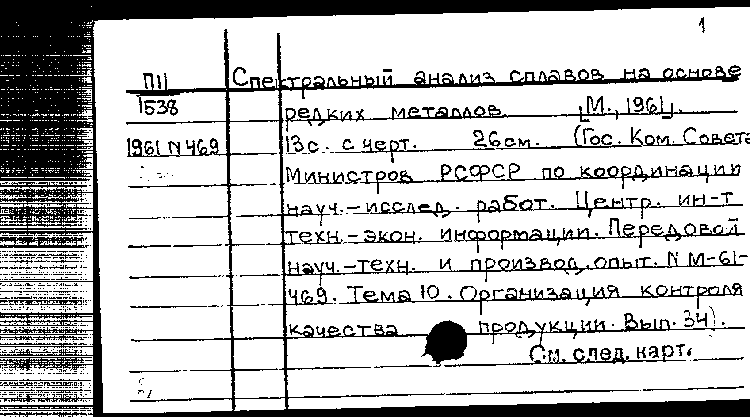 1
П11 Спектральный анализ сплавов на основе
1538 редких металлов. [М., 1961].
1961 N 469 13 с. с черт. 26 см. (Гос. Ком. Совета
Министров РСФСР по координации
науч.-исслед. работ. Центр. ин-т
техн.-экон. информации. Передовой
науч.-техн. и производ. опыт. N М-61-
469. Тема 10. Организация контроля
качества продукции. Вып. 34).
См. след. карт.